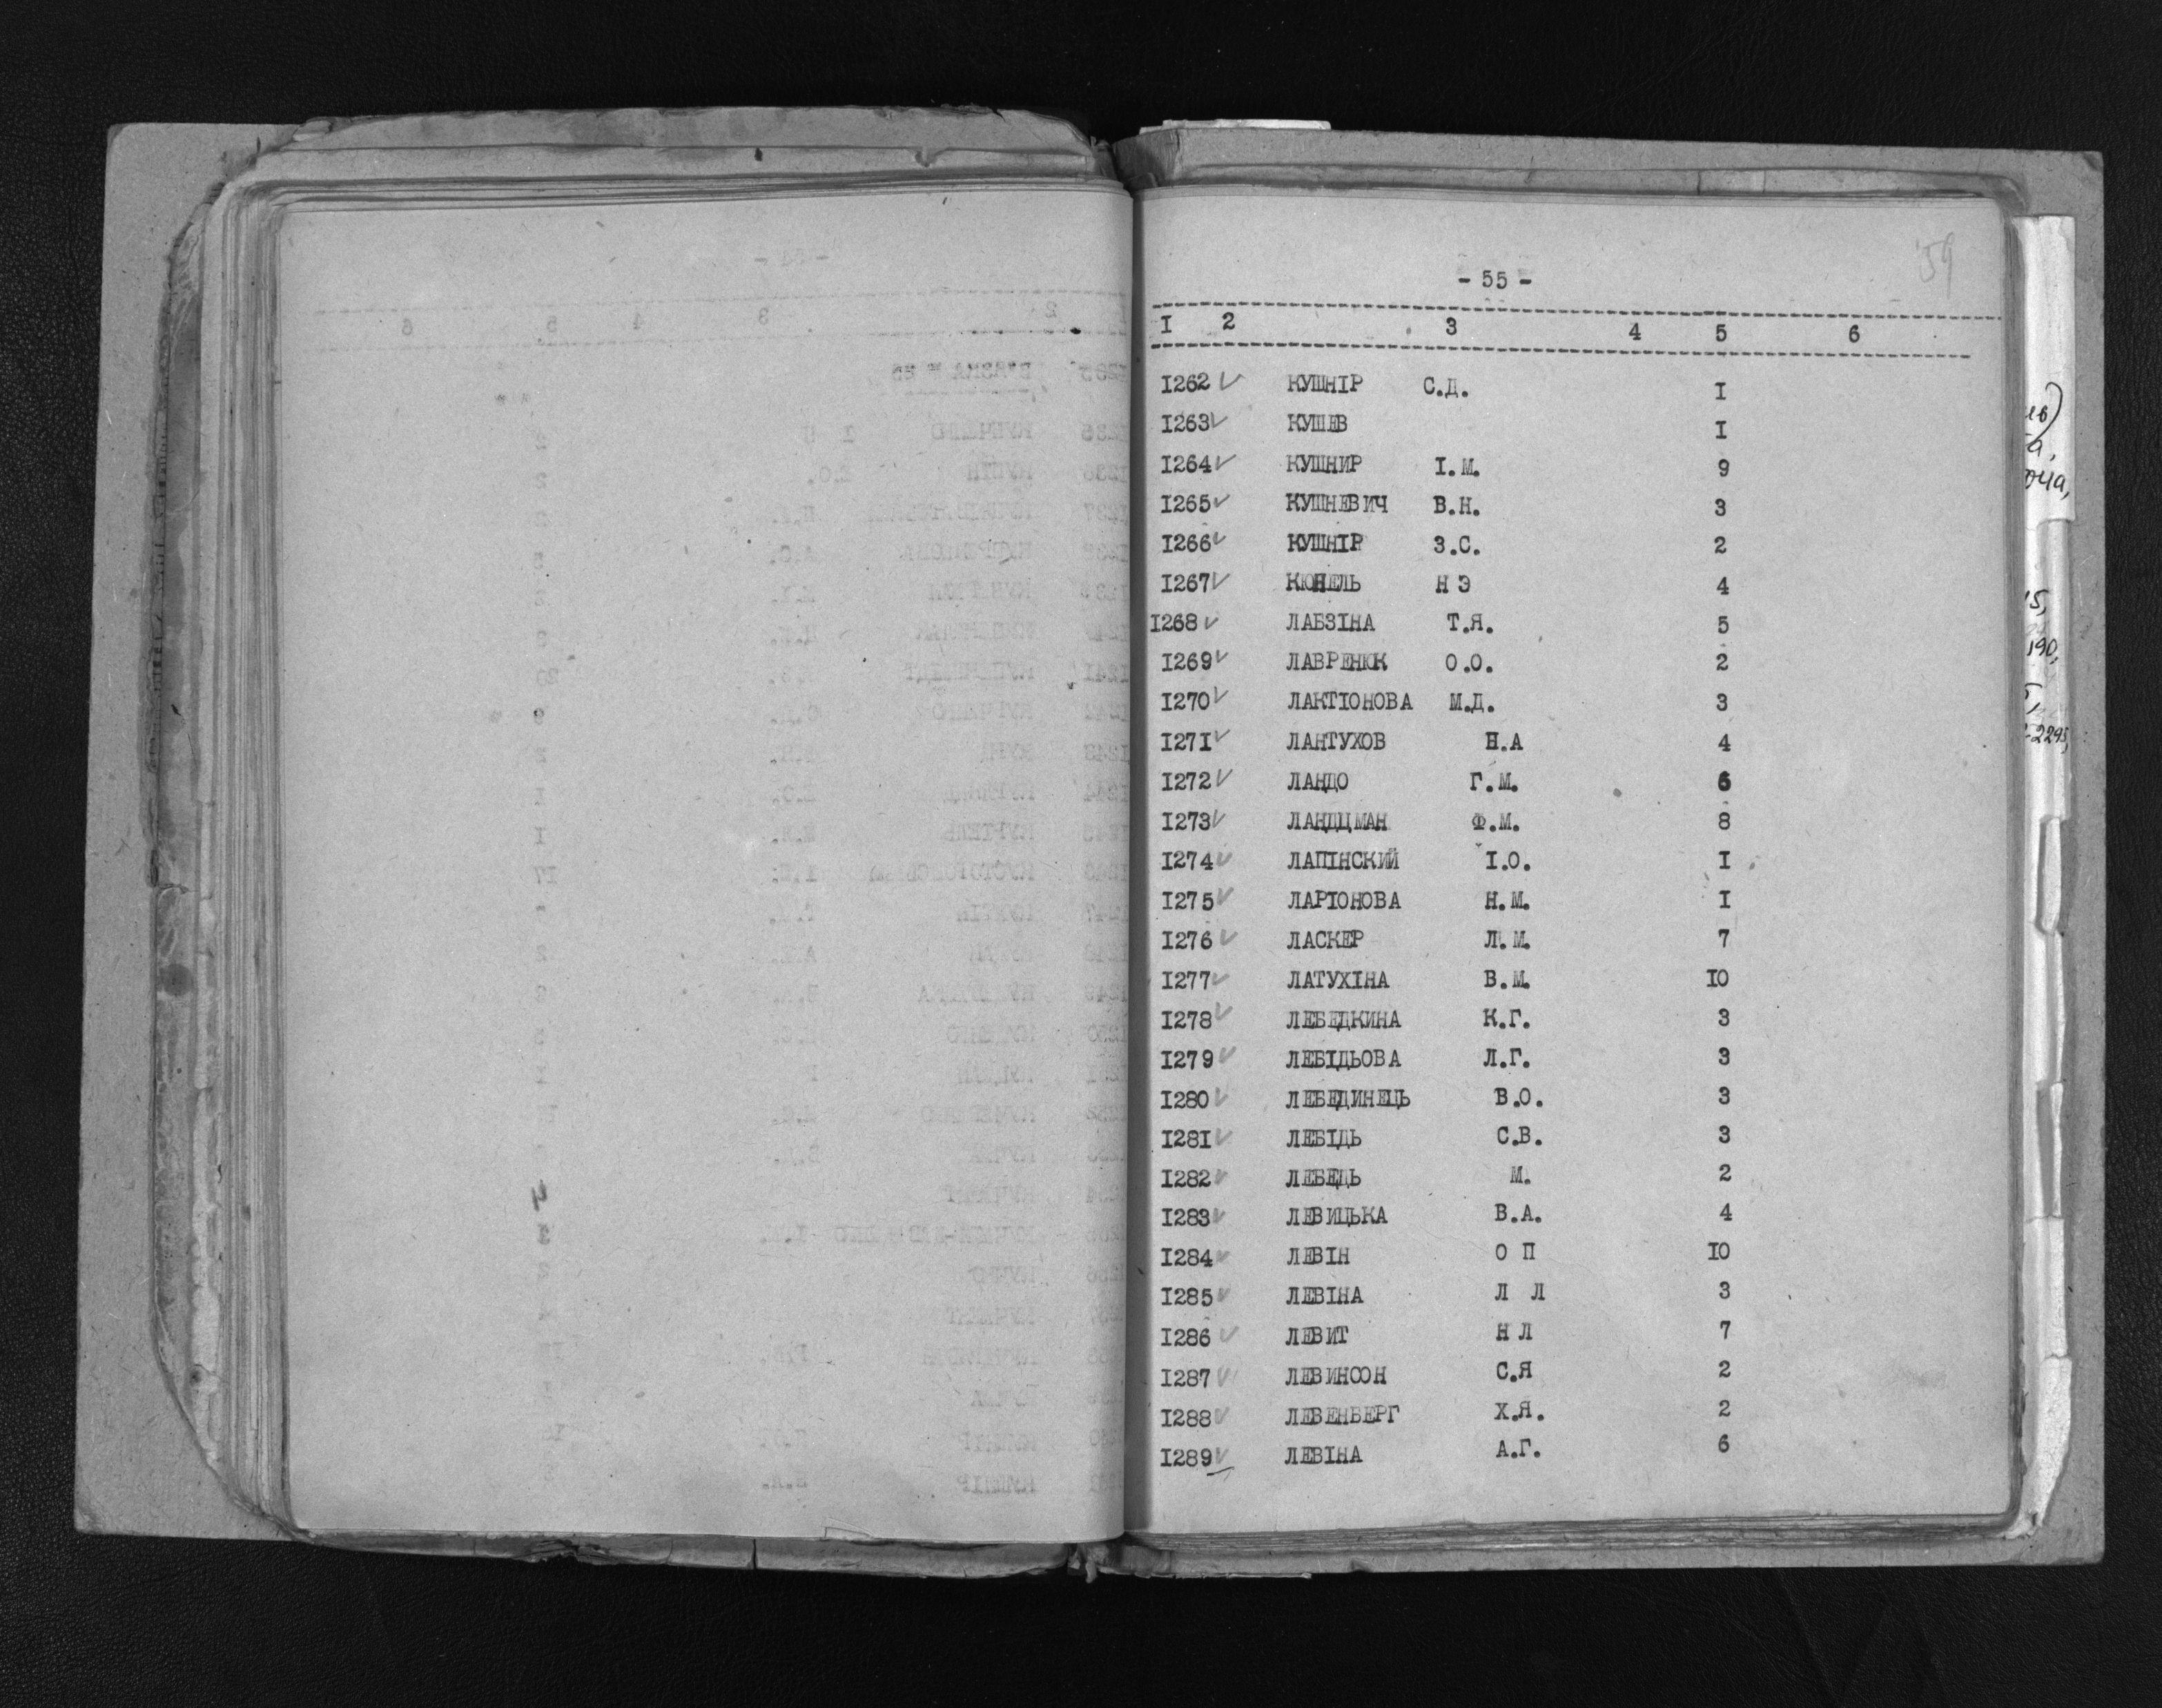 - 55 -
59
I 2 3 4 5 6
I262 КУШНІР С.Д. I
I263 КУШЕВ I
I264 КУШНИР І.М. 9
I265 КУШНЕВИЧ В.Н. 3
I266 КУШНІР З.С. 2
I267 КЮНЕЛЬ Н Э 4
I268 ЛАБЗІНА Т.Я. 5
I269 ЛАВРЕНЮК О.О. 2
I270 ЛАКТІОНОВА М.Д. 3
I271 ЛАНТУХОВ Н.А 4
I272 ЛАНДО Г.М. 6
I273 ЛАНДЦМАН Ф.М. 8
I274 ЛАПІНСКИЙ І.О. I
I275 ЛАРІОНОВА Н.М. I
I276 ЛАСКЕР Л.М. 7
I277 ЛАТУХІНА В.М. IO
I278 ЛЕБЕДКИНА К.Г. 3
I279 ЛЕБІДЬОВА Л.Г. 3
I280 ЛЕБЕДИНЕЦЬ В.О. 3
I281 ЛЕБІДЬ С.В. 3
I282 ЛЕБЕДЬ М. 2
I283 ЛЕВИЦЬКА В.А. 4
I284 ЛЕВІН О П IO
I285 ЛЕВІНА Л Л 3
I286 ЛЕВИТ Н Л 7
I287 ЛЕВИНСОН С.Я 2
I288 ЛЕВЕНБЕРГ Х.Я. 2
I289 ЛЕВІНА А.Г. 6